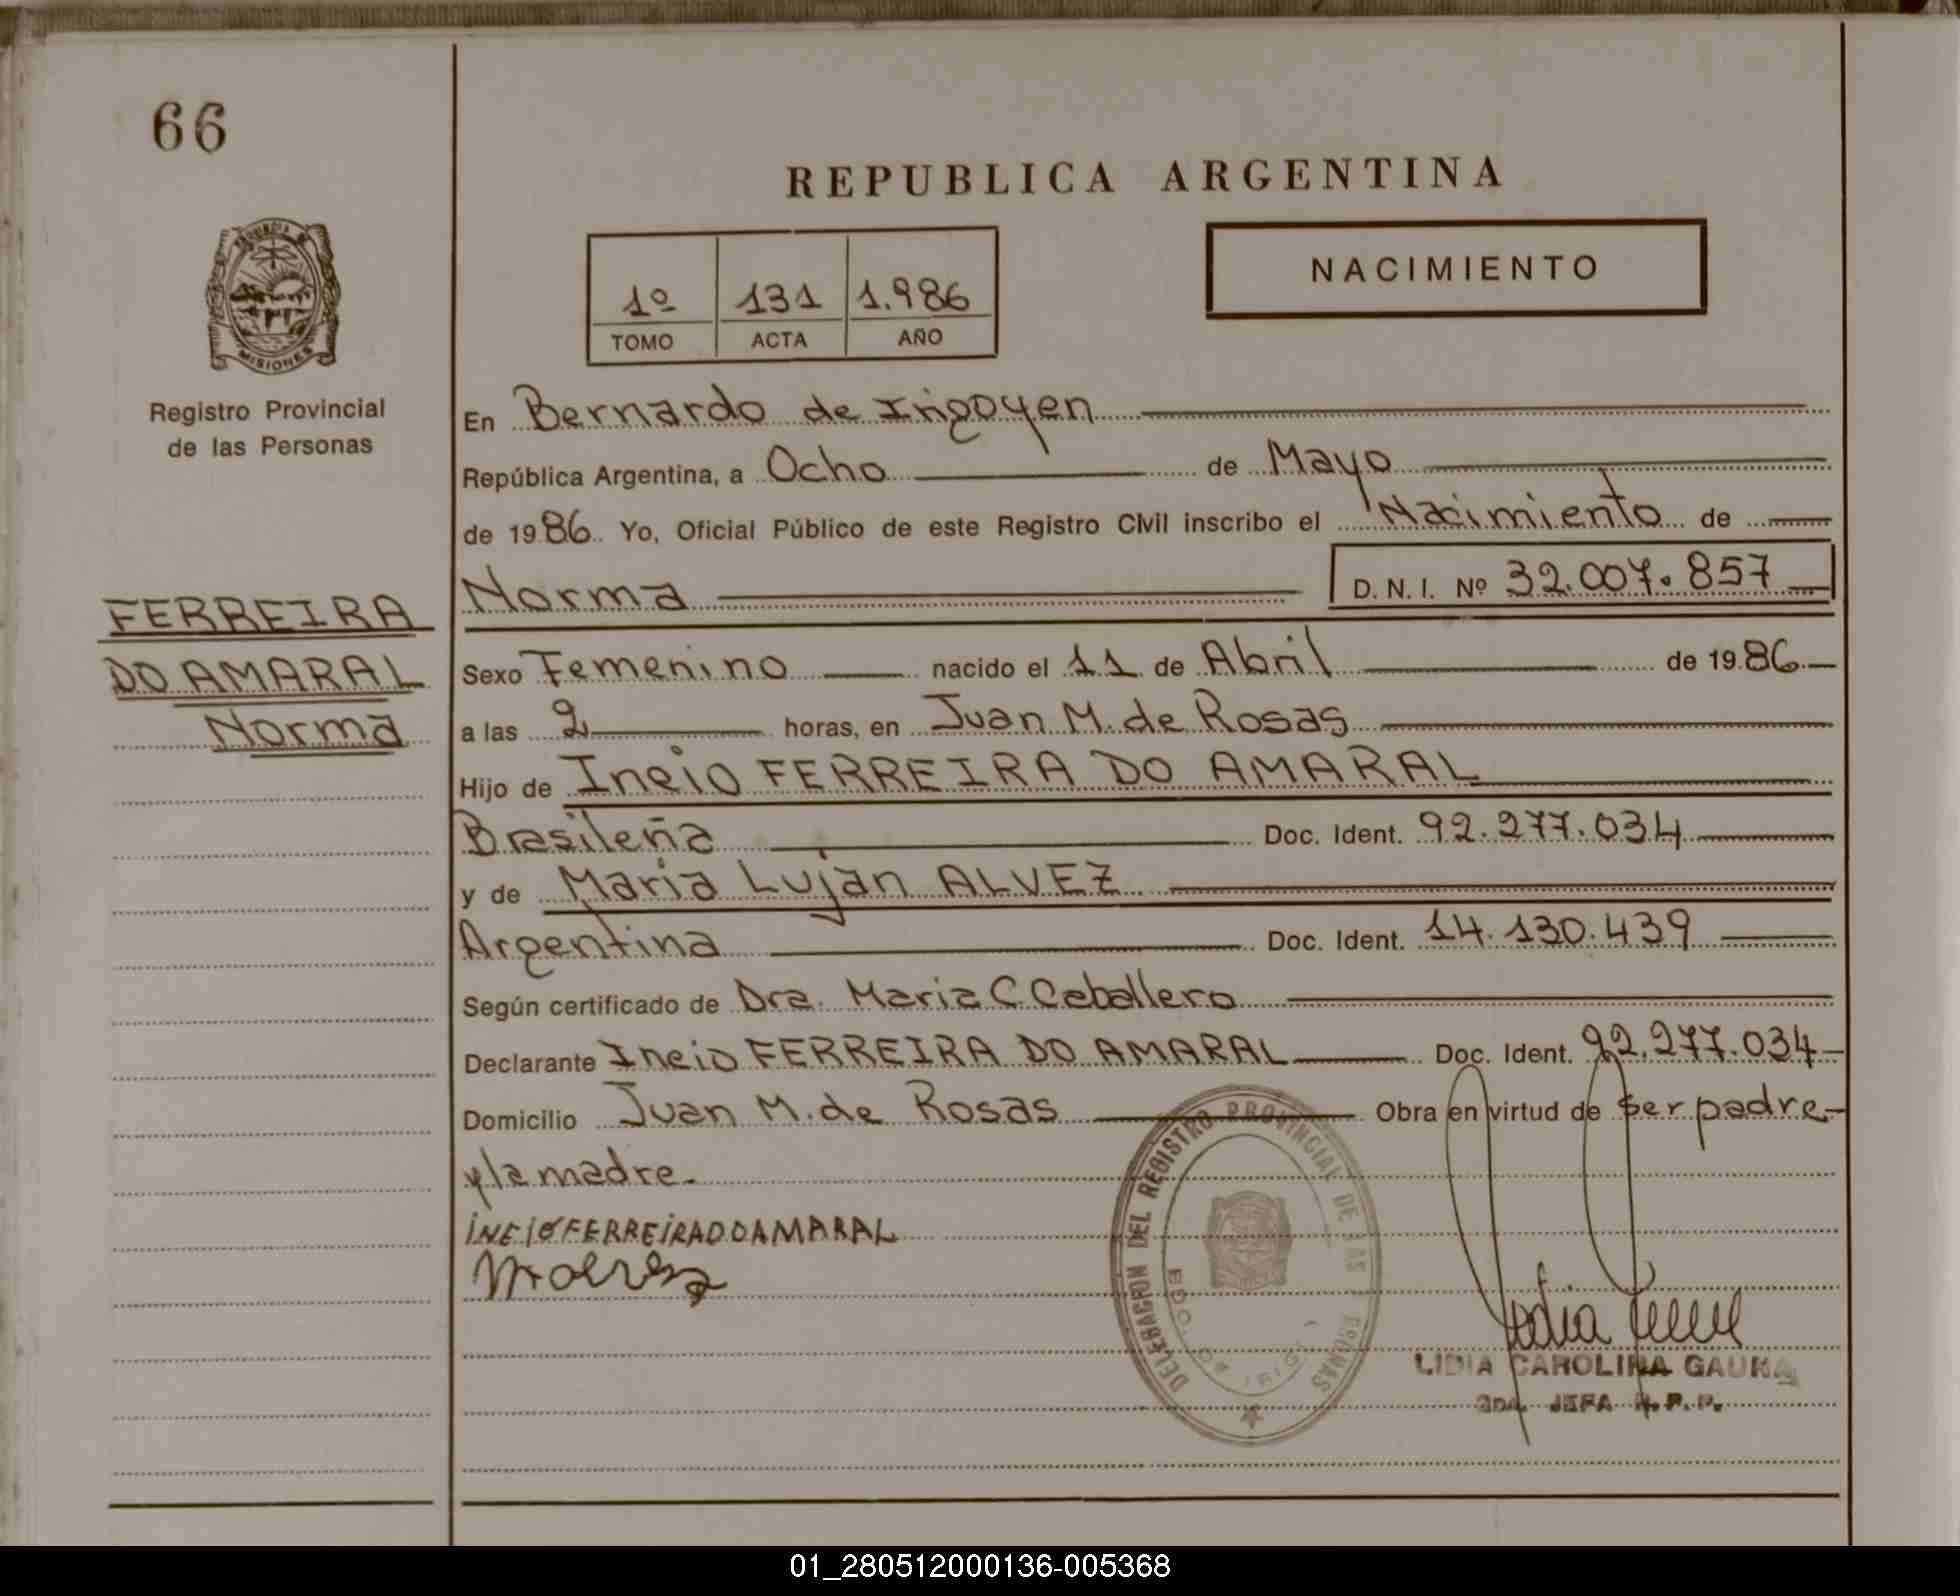 66
REPUBLICA ARGENTINA
1º 131 1.986
TOMO ACTA AÑO
NACIMIENTO
MISIONES
Registro Provincial
de las Personas
En Bernardo de Irigoyen
República Argentina, a Ocho de Mayo
de 1986. Yo, Oficial Público de este Registro Civil inscribo el Nacimiento de
Norma D. N. I. Nº 32.007.857
FERREIRA
DO AMARAL
Norma
Sexo Femenino nacido el 11 de Abril de 1986
a las 2 horas, en Juan M. de Rosas
Hijo de Ineio FERREIRA DO AMARAL
Brasileña Doc. Ident. 92.277.034
y de Maria Lujan ALVEZ
Argentina Doc. Ident. 14.130.439
Según certificado de Dra. Maria C Caballero
Declarante Ineio FERREIRA DO AMARAL Doc. Ident. 92.277.034
Domicilio Juan M. de Rosas Obra en virtud de ser padre
y la madre.
INEIO FERREIRA DO AMARAL
DELEGACION DEL REGISTRO PROVINCIAL DE LAS PERSONAS
BDO. DE IRIGOYEN
LIDIA CAROLINA GAUNA
JEFA R.P.P.
01_280512000136-005368